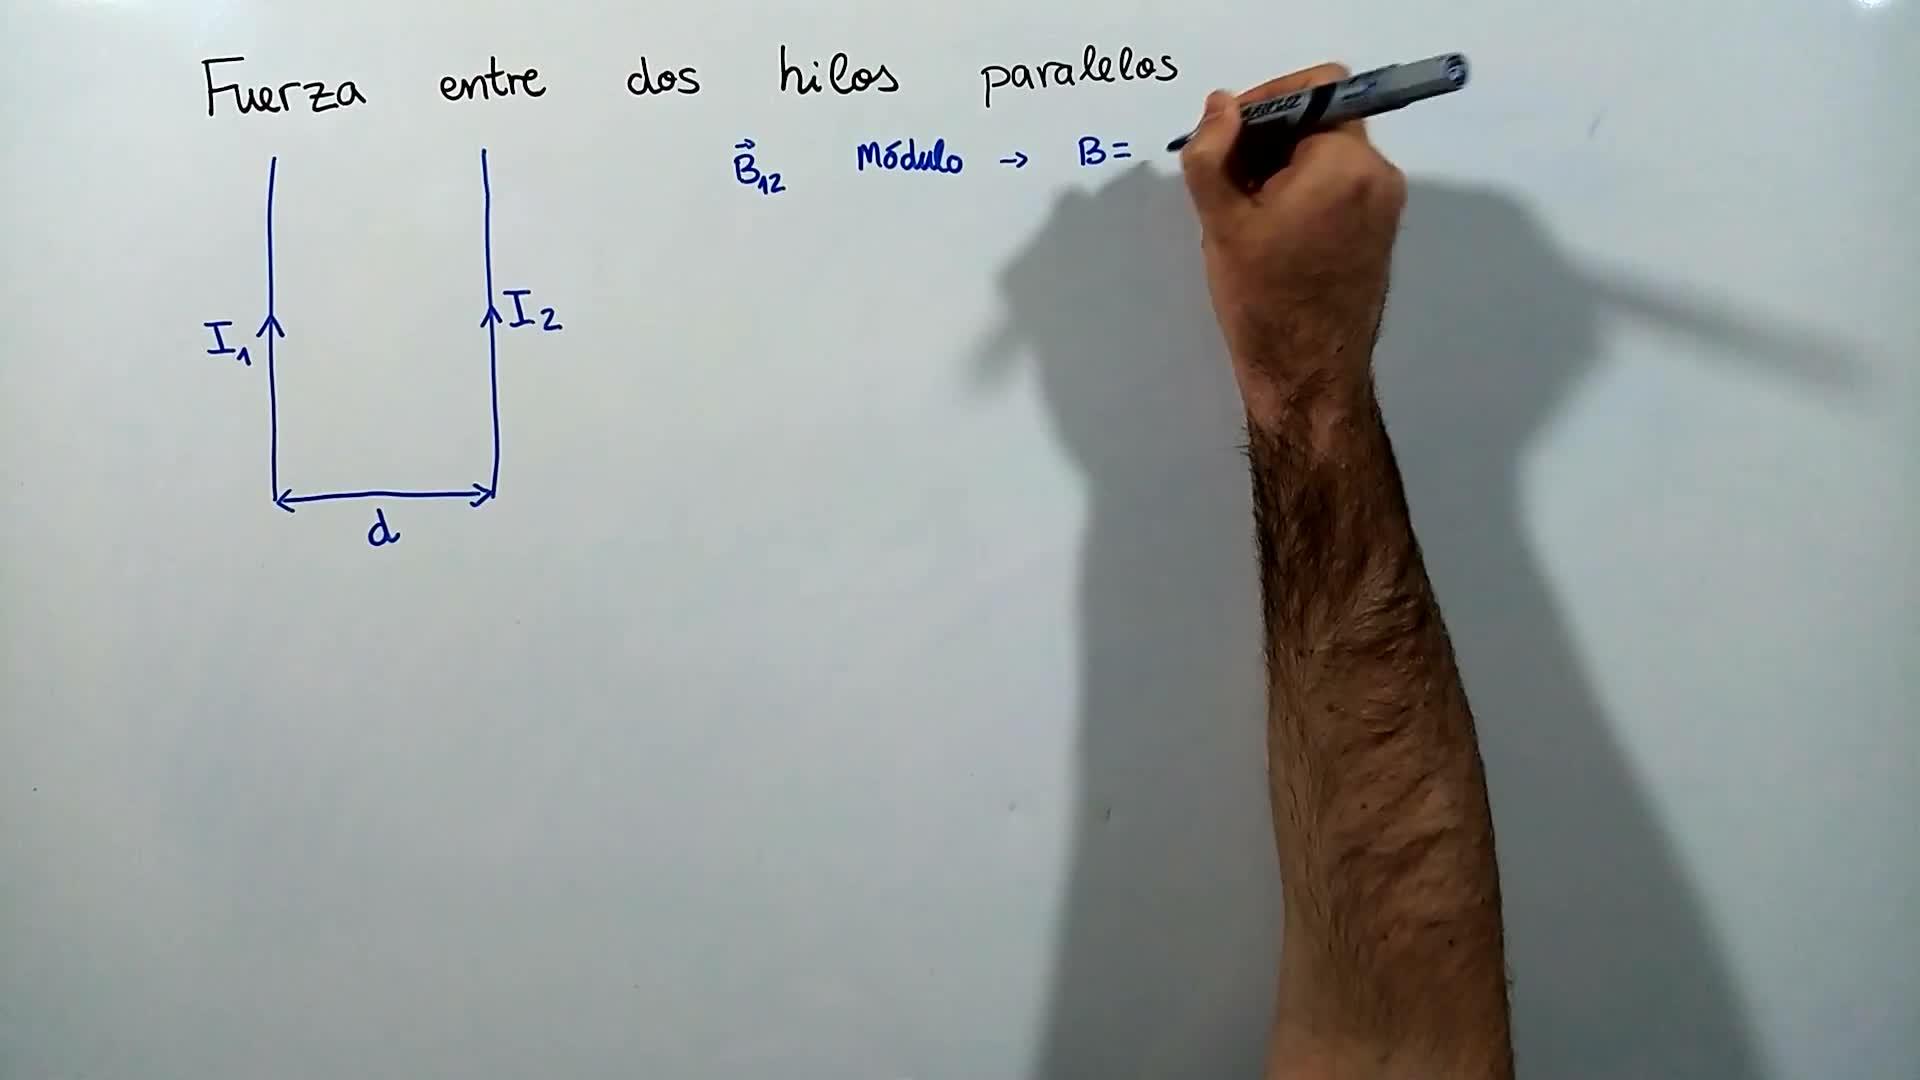 Fuerza entre dos hilos paralelos
B⃗₁₂ Módulo → B=
I₁
I₂
d